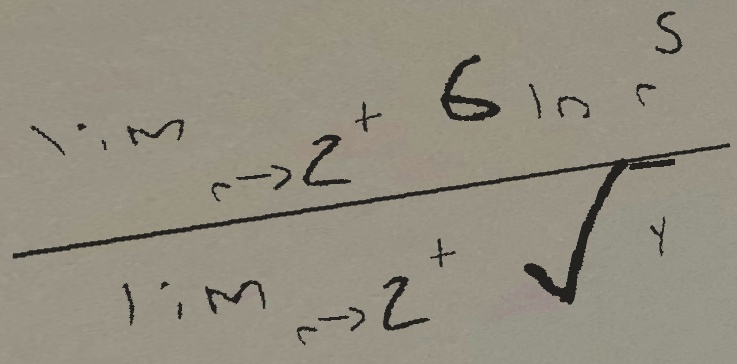 lim r→2⁺ 6 ln r⁵
lim r→2⁺ √y